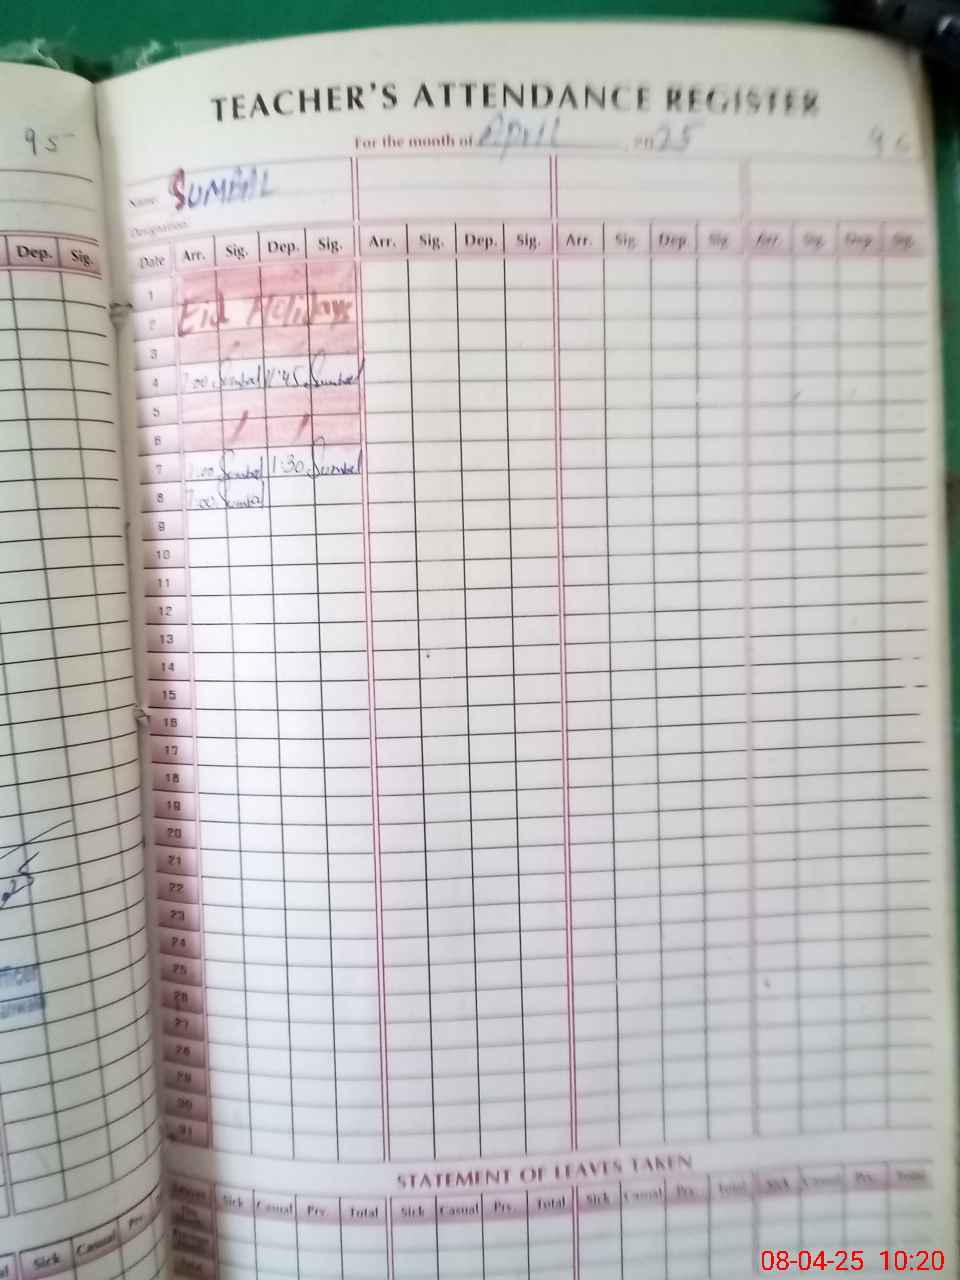 95
TEACHER'S ATTENDANCE REGISTER
For the month of April 2025
96
Name: SUMBAL
Designation:
Dep. Sig.
Date Arr. Sig. Dep. Sig. Arr. Sig. Dep. Sig. Arr. Sig. Dep. Sig. Arr. Sig. Dep. Sig.
1
Eid Holidays
2
3
4 7:00 Sumbal 1:45 Sumbal
5
6
7 7:00 Sumbal 1:30 Sumbal
8 7:00 Sumbal
9
10
11
12
13
14
15
16
17
18
19
20
21
22
23
24
25
26
27
28
29
30
31
STATEMENT OF LEAVES TAKEN
Sick Casual Prv. Total Sick Casual Prv. Total Sick Casual Prv. Total Sick Casual Prv. Total
Sick Casual Prv.
08-04-25 10:20